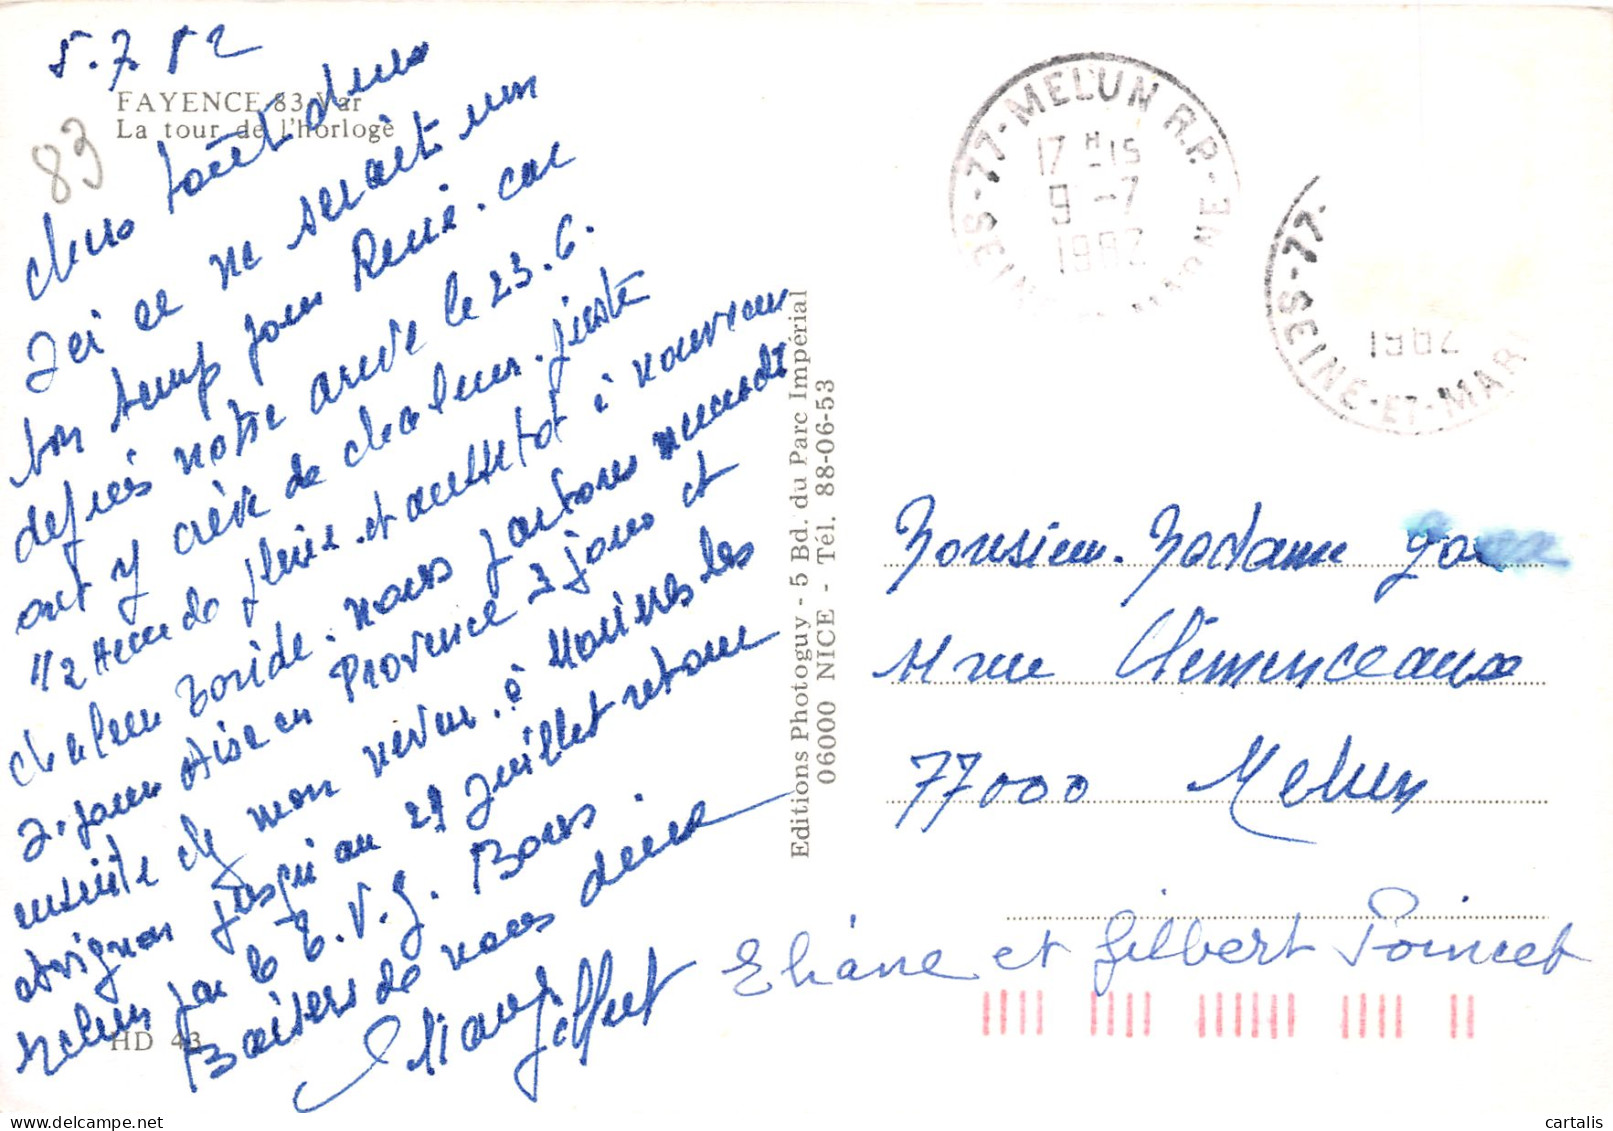 5.7.82
FAYENCE 83 Var
La tour de l'horloge
83
chers tous deux
Ici ce ne serait un
bon temps pour René. car
depuis notre arivé le 23.6.
ont y crève de chaleur. juste
1/2 Heure de pluie et aussitot à nouveau
chaleur Toride. nous partons mercredi
7. pour Aix en Provence 3 jours et
ensuite de mon neveu. à Morières les
Avignon jusqu'au 29 Juillet retour
Melun par le T.V.G. Bons
Baisers de nous deux
Gilbert
HD 43
Editions Photoguy - 5 Bd. du Parc Impérial
06000 NICE - Tél. 88-06-53
77-MELUN R.P.-
SEINE-ET-MARNE
17 H-15
9 -7
1982
-77-
SEINE-ET-MAR
1982
Monsieur. Madame
rue Clémenceaux
77000 Melun
Eliane et Gilbert Poincet
cartalis
https://www.delcampe.net